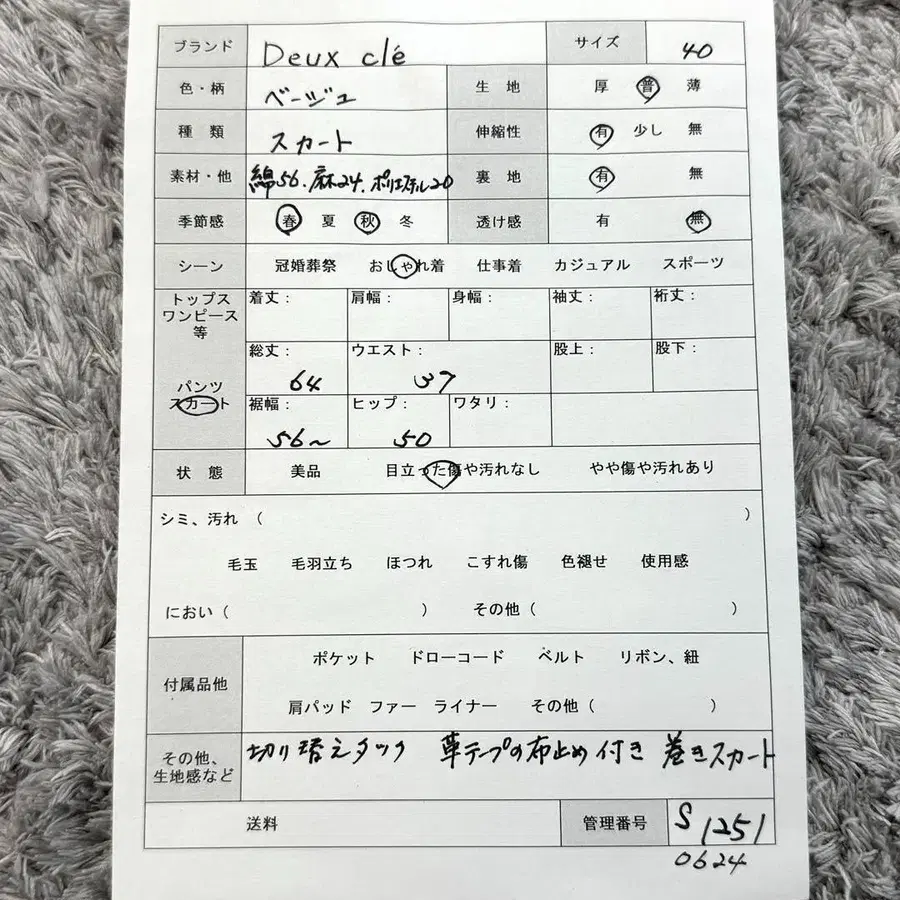 ブランド Deux clé サイズ 40
色・柄 ベージュ 生 地 厚 普 薄
種 類 スカート 伸縮性 有 少し 無
素材・他 綿56.麻24.ポリエステル20 裏 地 有 無
季節感 春 夏 秋 冬 透け感 有 無
シーン 冠婚葬祭 おしゃれ着 仕事着 カジュアル スポーツ
トップス ワンピース 等 着丈: 肩幅: 身幅: 袖丈: 裄丈:
パンツ スカート 総丈: 64 ウエスト: 37 股上: 股下:
裾幅: 56~ ヒップ: 50 ワタリ:
状 態 美品 目立った傷や汚れなし やや傷や汚れあり
シミ、汚れ ( )
毛玉 毛羽立ち ほつれ こすれ傷 色褪せ 使用感
におい ( ) その他 ( )
付属品他 ポケット ドローコード ベルト リボン、紐
肩パッド ファー ライナー その他 ( )
その他、生地感など 切り替えタック 革テープの布止め付き 巻きスカート
送料 管理番号 S1251
0624